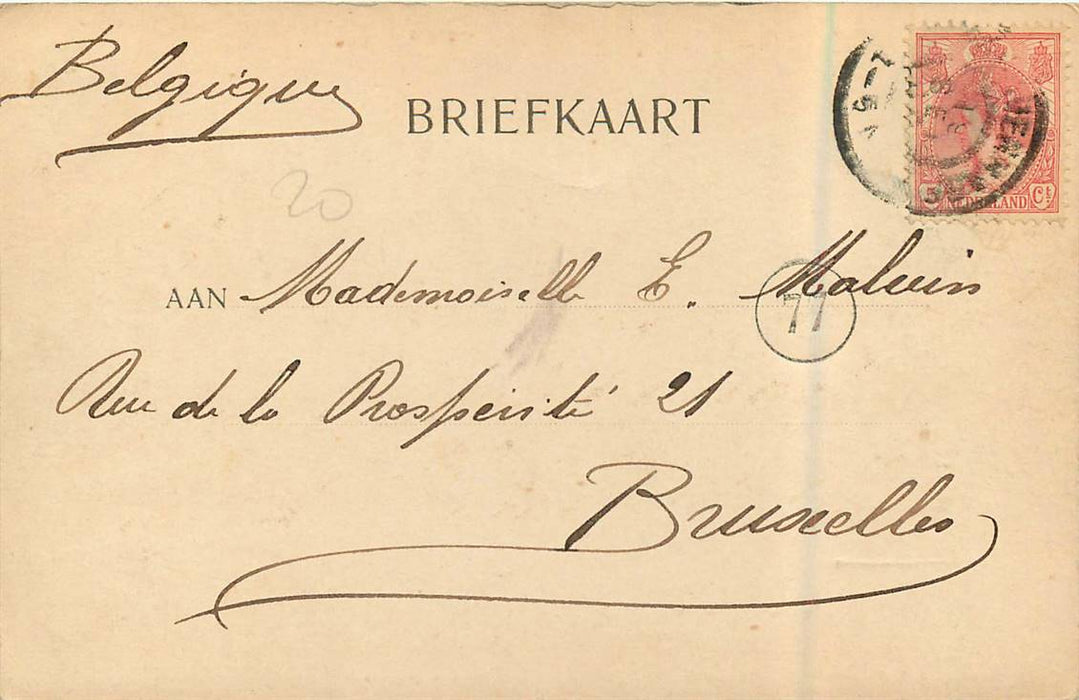 Belgique
BRIEFKAART
5 NEDERLAND Ct
20
AAN Mademoiselle E. Malvin
77
Rue de la Prosperité 21
Bruxelles